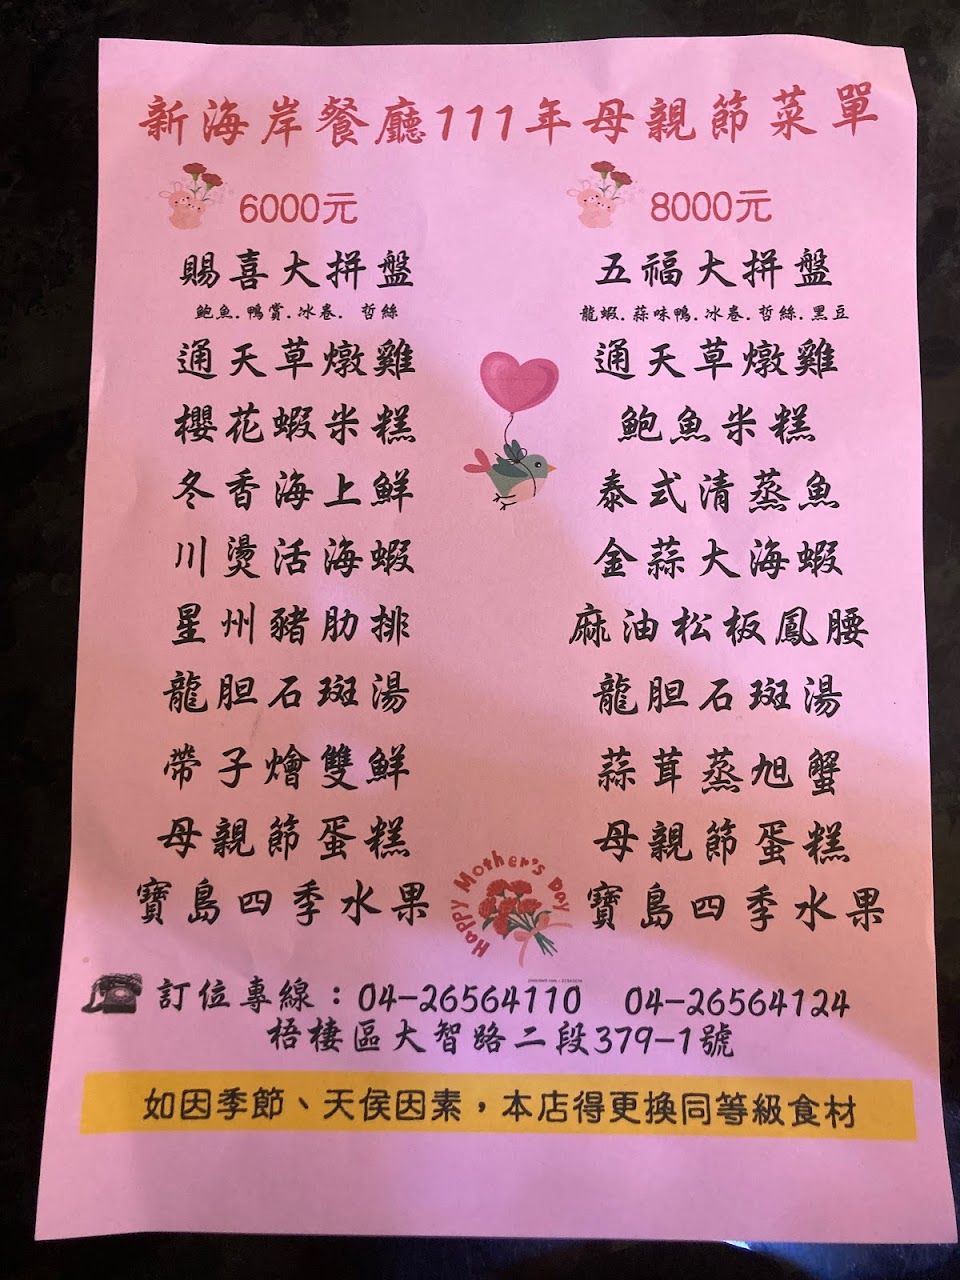 新海岸餐廳111年母親節菜單
6000元
賜喜大拼盤
鮑魚.鴨賞.冰卷. 哲絲
通天草燉雞
櫻花蝦米糕
冬香海上鮮
川燙活海蝦
星州豬肋排
龍胆石斑湯
帶子燴雙鮮
母親節蛋糕
寶島四季水果
8000元
五福大拼盤
龍蝦.蒜味鴨.冰卷.哲絲.黑豆
通天草燉雞
鮑魚米糕
泰式清蒸魚
金蒜大海蝦
麻油松板鳳腰
龍胆石斑湯
蒜茸蒸旭蟹
母親節蛋糕
寶島四季水果
Happy Mother's Day
訂位專線：04-26564110 04-26564124
梧棲區大智路二段379-1號
如因季節、天侯因素，本店得更換同等級食材